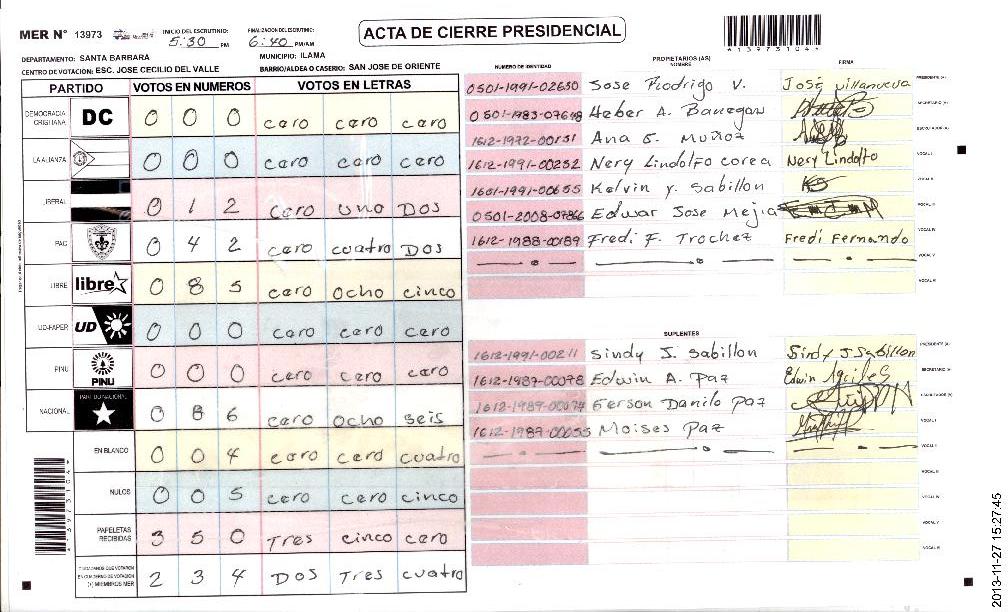 MER N° 13973
INICIO DEL ESCRUTINIO: 5:30 PM
FINALIZACION DEL ESCRUTINIO: 6:40 PM/AM
ACTA DE CIERRE PRESIDENCIAL
13973104
DEPARTAMENTO: SANTA BARBARA
MUNICIPIO: ILAMA
CENTRO DE VOTACION: ESC. JOSE CECILIO DEL VALLE
BARRIO/ALDEA O CASERIO: SAN JOSE DE ORIENTE
PARTIDO VOTOS EN NUMEROS VOTOS EN LETRAS
DEMOCRACIA CRISTIANA DC 0 0 0 cero cero cero
LA ALIANZA 0 0 0 cero cero cero
LIBERAL 0 1 2 cero uno Dos
PAC 0 4 2 cero cuatro Dos
LIBRE libre 0 8 5 cero ocho cinco
UD-FAPER UD 0 0 0 cero cero cero
PINU PINU 0 0 0 cero cero cero
NACIONAL PARTIDO NACIONAL 0 8 6 cero ocho seis
EN BLANCO 0 0 4 cero cero cuatro
NULOS 0 0 5 cero cero cinco
PAPELETAS RECIBIDAS 3 5 0 Tres cinco cero
CIUDADANOS QUE VOTARON EN CUADERNO DE VOTACION (+) MIEMBROS MER 2 3 4 Dos Tres cuatro
PROPIETARIOS (AS)
NUMERO DE IDENTIDAD NOMBRE FIRMA
0501-1991-02650 Jose Rodrigo V. José Villanueva PRESIDENTE (A)
Heber A. Banegas SECRETARIO (A)
1612-1972-00151 Ana E. Muñoz ESCRUTADOR (A)
1612-1991-00252 Nery Lindolfo corea Nery Lindolfo VOCAL I
1601-1991-00655 Kelvin Y. Sabillon VOCAL II
Edwar Jose Mejia VOCAL III
1612-1988-00189 Fredi F. Trochez Fredi Fernando VOCAL IV
VOCAL V
VOCAL VI
SUPLENTES
1612-1991-00211 Sindy J. Sabillon Sindy J Sabillon PRESIDENTE (A)
1612-1987-00078 Edwin A. Paz Edwin SECRETARIO (A)
Gerson Danilo Paz ESCRUTADOR (A)
Moises Paz VOCAL I
VOCAL II
VOCAL III
VOCAL IV
VOCAL V
VOCAL VI
2013-11-27 15:27:45